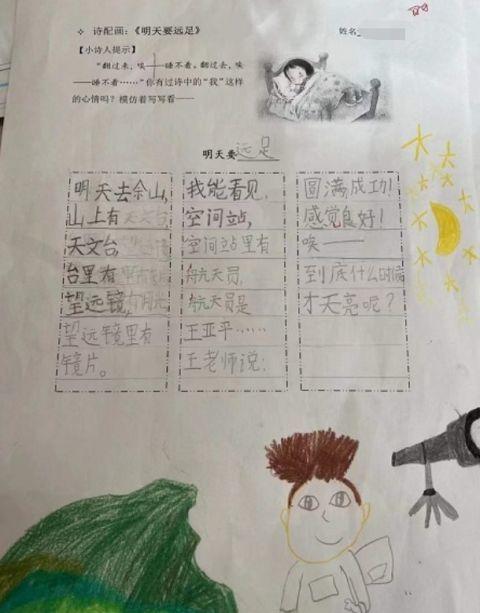 ✧ 诗配画：《明天要远足》
姓名
【小诗人提示】
“翻过来，唉——睡不着。翻过去，唉
——睡不着……”你有过诗中的“我”这样
的心情吗？模仿着写写看——
明天要远足
明天去佘山，
山上有天文台，
天文台，
台里有
望远镜，
望远镜里有
镜片。
我能看见，
空间站，
空间站里有
航天员，
航天员是
王亚平……
王老师说：
圆满成功！
感觉良好！
唉——
到底什么时候
才天亮呢？